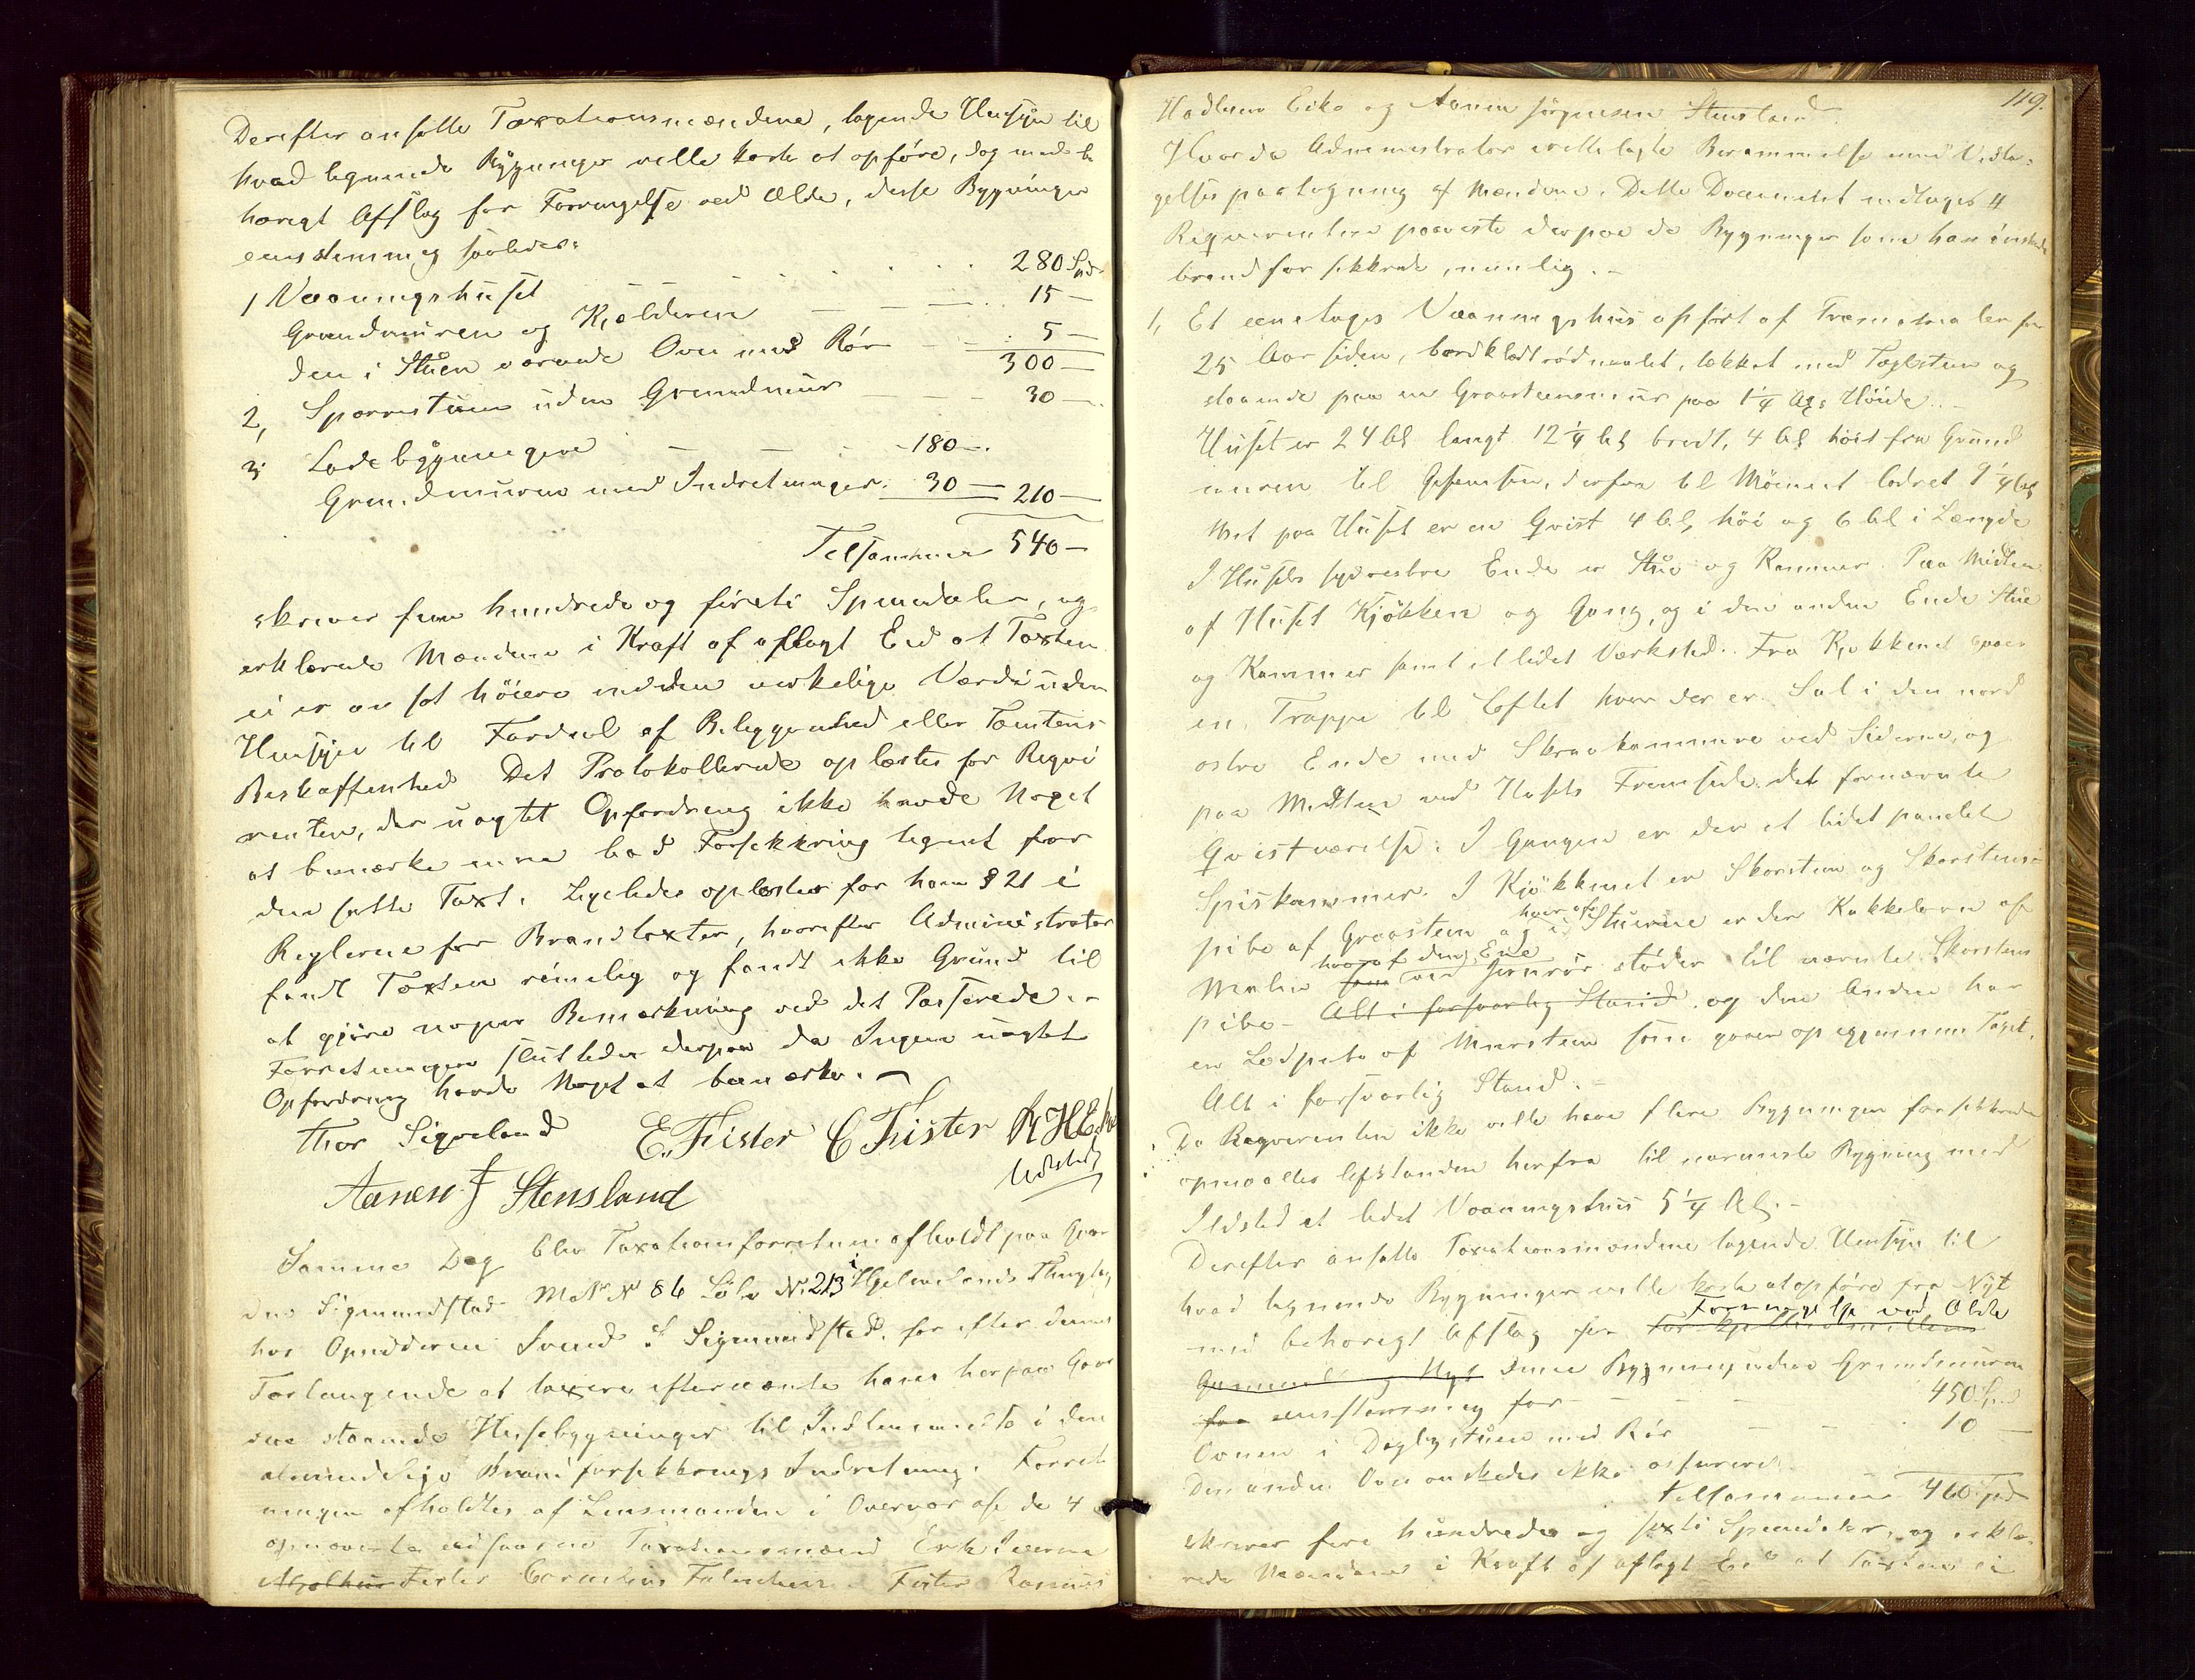 Derefter ansatte Taxationsmændene, tagende Hensyn til
hvad lignende Bygninger ville koste at opføre, dog med be
hørigt Afslag for Forringelse ved Ælde, disse Bygninger
eensstemmig saaledes:
1 Vaaningshuset 280 Spd.
Grundmuren og Kjælderen 15 —
den i Stuen værende Ovn med Rør 5 —
300 —
2, Sperrestuen uden Grundmur 30 —
3; Ladebygningen 180 —
Grundmuren med Indretninger 30 — 210 —
Tilsammen 540 —
skriver fem hundrede og fireti Speciedaler, og
erklærede Mændene i Kraft af aflagt Eed at Taxten
ei er an sat høiere end den virkelige Værdi uden
Hensyn til Fordeel af Beliggenhed eller Tomtens
Beskaffenhed. Det Protokollerede oplæstes for Reqvi
renten, der uagtet Opfordring ikke havde Noget
at bemærke men bad Forsikkring tegnet for
den satte Taxt. Ligeledes oplæstes for ham § 21 i
Reglerne for Brandtaxter, hvorefter Administrator
fandt Taxten rimelig og fandt ikke Grund til
at gjøre nogen Bemærkning ved det Passerede. –
Forretningen sluttedes derpaa da Ingen uagtet
Opfordring havde Noget at bemærke. –
Thor Sigveland E. Fister C Fister R H Eike
Aanen J Stensland Udstedt
Samme Dag blev Taxationsforretning afholdt paa Gaar
den Sigmundstad Matr N 86 Løbe N. 213 i Hjelmelands Thinglag
hos Opsidderen Svend S Sigmundstad, for efter dennes
Forlangende at taxere efternævnte hans herpaa Gaar
den staaende Husebygninger til Indlemmelse i den
almindelige Brandforsikkrings Indretning. Forret
ningen afholdtes af Lensmanden i Overvær af de 4
opnævnte edsvorne Taxationsmænd Erik Iversen
Fister Cornelius Fister Rasmus
119.
Hadlesen Eike og Aanen Jørgensen Stensland.
Hvorda Administrator irettelagte Berammelse med Vedta-
gelsespaategning af Mændene. Dette Document indtages #
Reqvirenten paaviste derpaa de Bygninger som han ønskede
brandforsikkrede, nemlig: –
1, Et eenetages Vaaningshus opført af Træmateriale for
25 Aar siden, bordklædt rødmalet, tækket med Taglsten og
staaende paa en Graasteensmur paa 1¼ Al. Høide. –
Huset er 24 Al. langt 12¼ Al. bredt, 4 Al. høit fra Grund
muren til Gesemsen, derfra til Mønnet lodret 9¼ Al.
Mit paa Huset er en Qvist 4 Al. høi og 6 Al i Længde
I Husets sydvestre Ende er Stue og Kammer. Paa Midten
af Huset Kjøkken og Gang, og i den anden Ende Stue
og Kammer samt et lidet Værksted. Fra Kjøkkenet gaaer
en Trappe til Loftet hvor der er Sal i den nord
ostre Ende med Skraakammere ved Siderne, og
paa Midten ved Husets Fremside det fornævnte
Qvistværelse. I Gangen er der et lidet panelet
Spiskammer. I Kjøkkenet er Skorsten og Skorsteens-
pibe af Graasteen og i hver af Stuerne er der Kakkelovn af
Malm som hvoraf den Ene ved Jernrør støder til nævnte Skorsteens
pibe – Alt i forsvarlig Stand og den Anden har
en Ledpibe af Mursteen som gaaer op igjennem Taget.
Alt i forsvarlig Stand. –
Da Reqvirenten ikke ville have flere Bygninger forsikkrede
opmaaltes Afstanden herfra til nærmeste Bygning med
Ildsted et lidet Vaaningshus 5¼ Al. –
Derefter ansatte Taxationsmændene tagende Hensyn til
hvad lignende Bygninger ville koste at opføre fra Nyt
med behørigt Afslag for Forringelse ved Ælde
Gammelt og Nyt denne Bygning uden Grundmuren
for eensstemmig for 450 Spd
Ovnen i Dagligstuen med Rør 10 —
Den anden Ovn ønskedes ikke assureret.
tilsammen 460 Spd
skriver fire hundrede og sexti Speciedaler, og erklæ-
rede Mændene i Kraft af aflagt Eed at Taxten ei